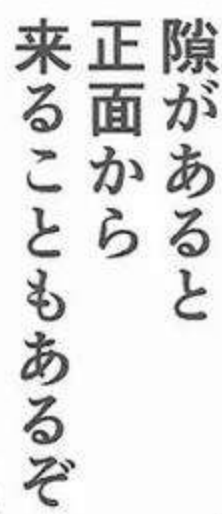 隙があると
正面から
来ることもあるぞ